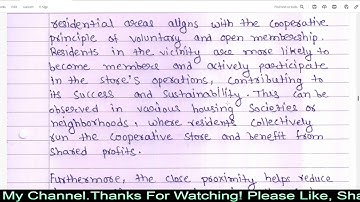 residential areas aligns with the cooperative
principle of voluntary and open membership.
Residents in the vicinity are more likely to
become members and actively participate
in the store's operations, contributing to
its success and sustainability. This can be
observed in various housing societies or
neighborhoods, where residents collectively
run the cooperative store and benefit from
shared profits.
Furthermore, the close proximity helps reduce
My Channel.Thanks For Watching! Please Like, Sha